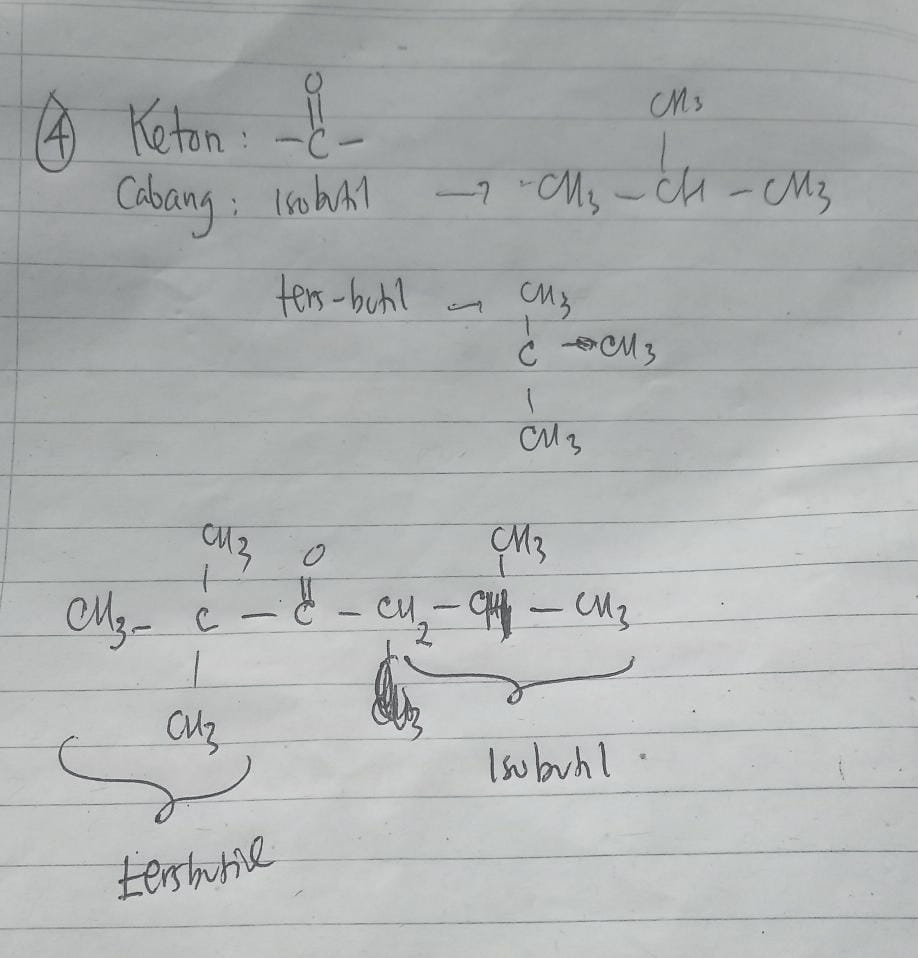 4 Keton : - C -
O
||
Cabang : Isobutil → -CH3 - CH - CH3
CH3
|
ters-butil → CH3
|
C - CH3
|
CH3
CH3 O CH3
| || |
CH3 - C - C - CH2 - CH - CH3
|
CH3
Isobutil
tersbutil